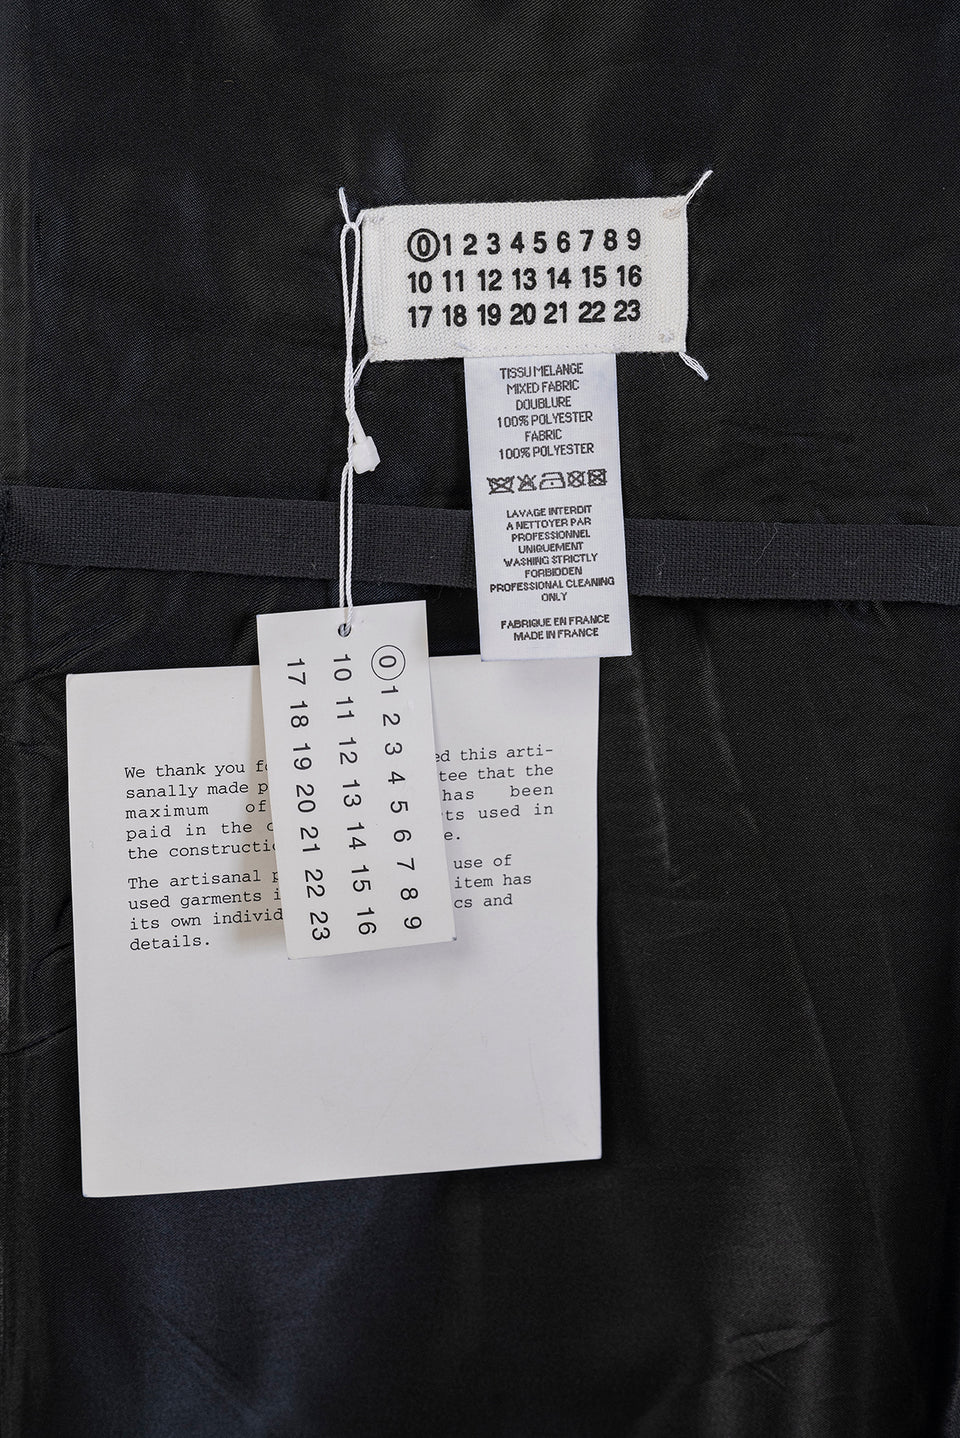 0 1 2 3 4 5 6 7 8 9
10 11 12 13 14 15 16
17 18 19 20 21 22 23
TISSU MELANGE
MIXED FABRIC
DOUBLURE
100% POLYESTER
FABRIC
100% POLYESTER
LAVAGE INTERDIT
A NETTOYER PAR
PROFESSIONNEL
UNIQUEMENT
WASHING STRICTLY
FORBIDDEN
PROFESSIONAL CLEANING
ONLY
FABRIQUE EN FRANCE
MADE IN FRANCE
0 1 2 3 4 5 6 7 8 9
10 11 12 13 14 15 16
17 18 19 20 21 22 23
We thank you this arti-
sanally made that the
maximum of has been
paid in the used in
the
The artisanal use of
used garments item has
its own and
details.